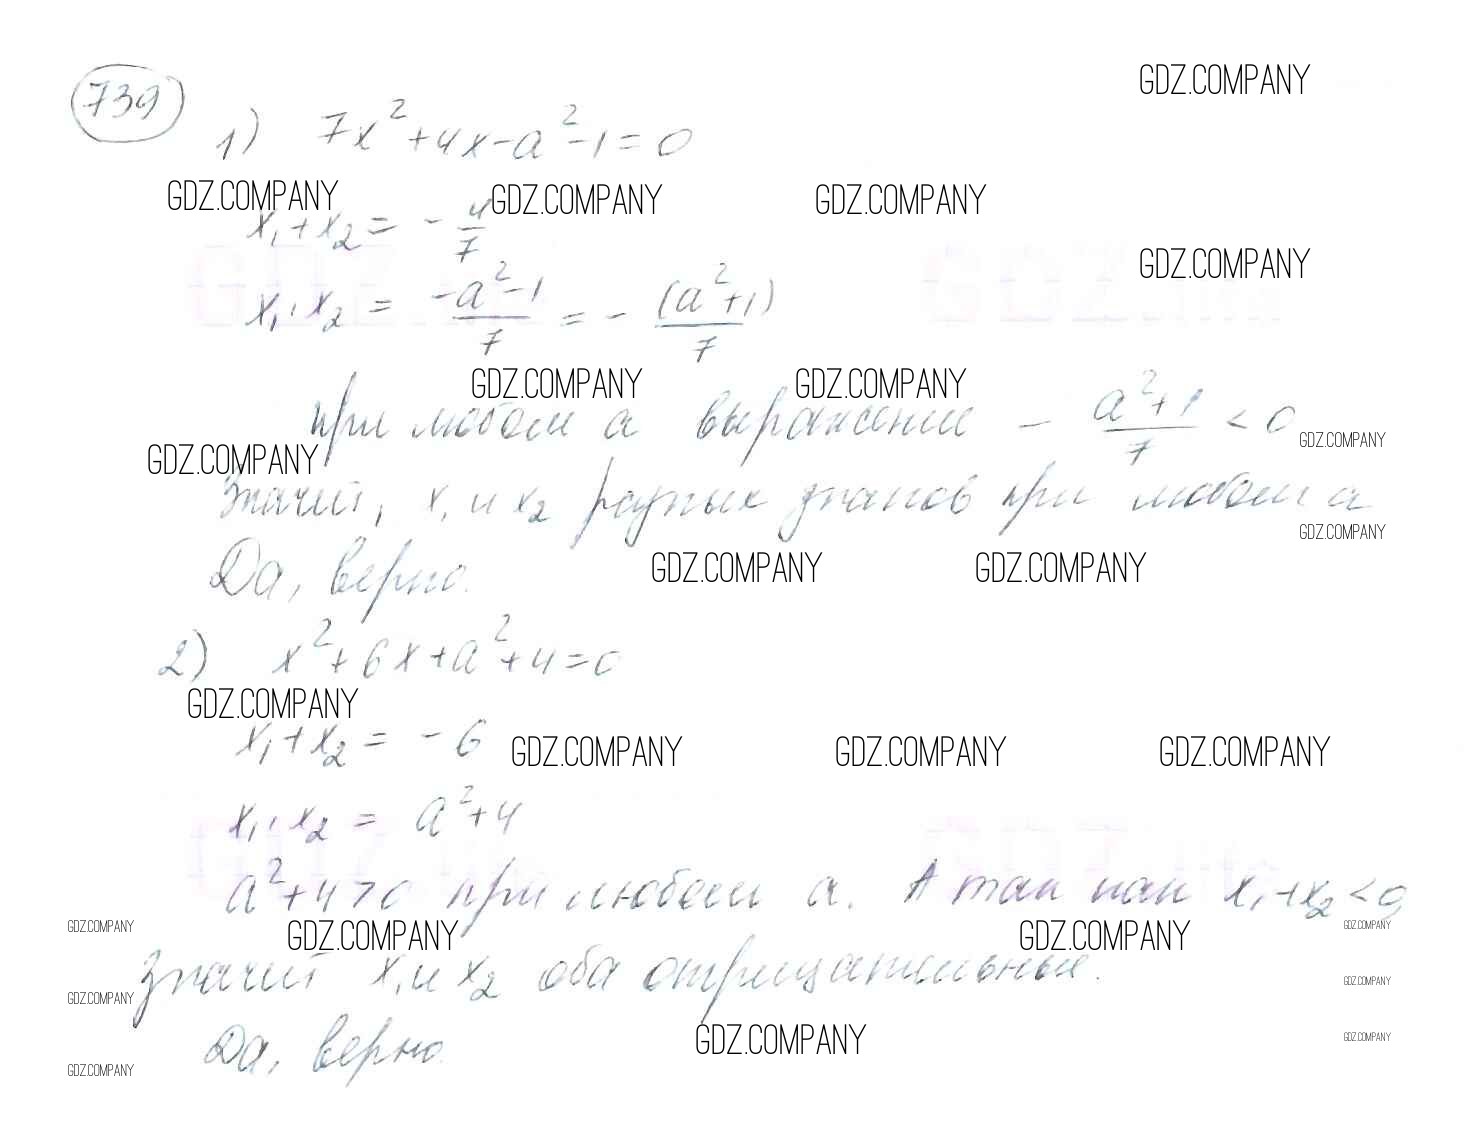 GDZ.COMPANY
739
1) 7x² + 4x - a² - 1 = 0
GDZ.COMPANY GDZ.COMPANY GDZ.COMPANY
x₁ + x₂ = - 4/7
GDZ.COMPANY
x₁ · x₂ = (-a² - 1)/7 = - (a² + 1)/7
GDZ.COMPANY GDZ.COMPANY
при любом a выражение - (a² + 1)/7 < 0
GDZ.COMPANY
GDZ.COMPANY
Значит, x₁ и x₂ разных знаков при любом a
GDZ.COMPANY
Да, верно.
GDZ.COMPANY GDZ.COMPANY
2) x² + 6x + a² + 4 = 0
GDZ.COMPANY
x₁ + x₂ = - 6
GDZ.COMPANY GDZ.COMPANY GDZ.COMPANY
x₁ · x₂ = a² + 4
a² + 4 > 0 при любом a. А так как x₁ + x₂ < 0,
GDZ.COMPANY GDZ.COMPANY GDZ.COMPANY GDZ.COMPANY
значит x₁ и x₂ оба отрицательные.
GDZ.COMPANY
GDZ.COMPANY
Да, верно.
GDZ.COMPANY
GDZ.COMPANY
GDZ.COMPANY